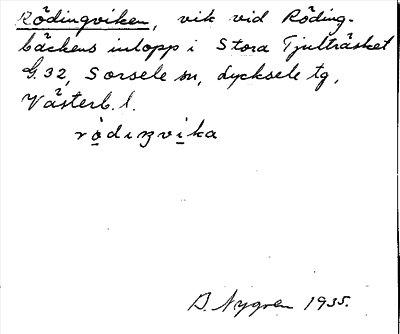 Rödingviken, vik vid Röding-
bäckens inlopp i Stora Tjulträsket
G.32, Sorsele sn, Lycksele tg,
Västerb. l.
rödıŋvika
D. Nygren 1935.